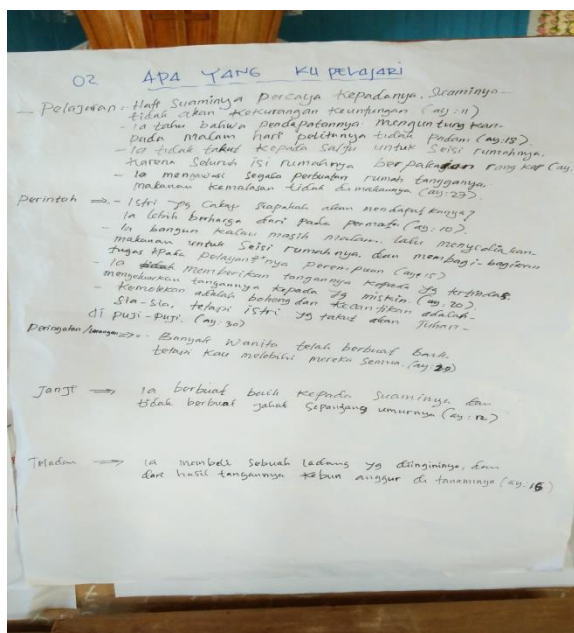 02 APA YANG KU PELAJARI
- Pelajaran = Hati Suaminya percaya kepadanya, Suaminya -
tidak akan kekurangan keuntungan (ay: 11)
- Ia tahu bahwa pendapatannya menguntungkan.
pada malam hari pelitanya tidak padam (ay: 18)
- Ia tidak takut kepada salju untuk seisi rumahnya.
karena seluruh isi rumahnya berpakaian rangkap (ay:
- Ia mengawasi segala perbuatan rumah tangganya.
makanan kemalasan tidak di makannya (ay: 27).
Perintah => - Istri yg Cakap siapakah akan mendapatkannya?
Ia lebih berharga dari pada permata (ay: 10).
- Ia bangun kalau masih malam, lalu menyediakan
makanan untuk seisi rumahnya, dan membagi-bagikan
tugas kpada pelayan²nya perempuan (ay: 15)
- Ia memberikan tangannya kepada yg tertindas
mengeluarkan tangannya kepada yg miskin. (ay: 20)
- Kemolekan adalah bohong dan kecantikan adalah-
sia-sia, tetapi istri yg takut akan Tuhan-
di puji-puji. (ay: 30)
Peringatan / => - Banyak wanita telah berbuat baik.
tetapi kau melebihi mereka semua. (ay: 29)
Janji => Ia berbuat baik kepada suaminya dan
tidak berbuat jahat sepanjang umurnya (ay: 12)
Teladan => Ia membeli sebuah ladang yg diingininya, dan
dari hasil tangannya kebun anggur di tanaminya (ay. 16)